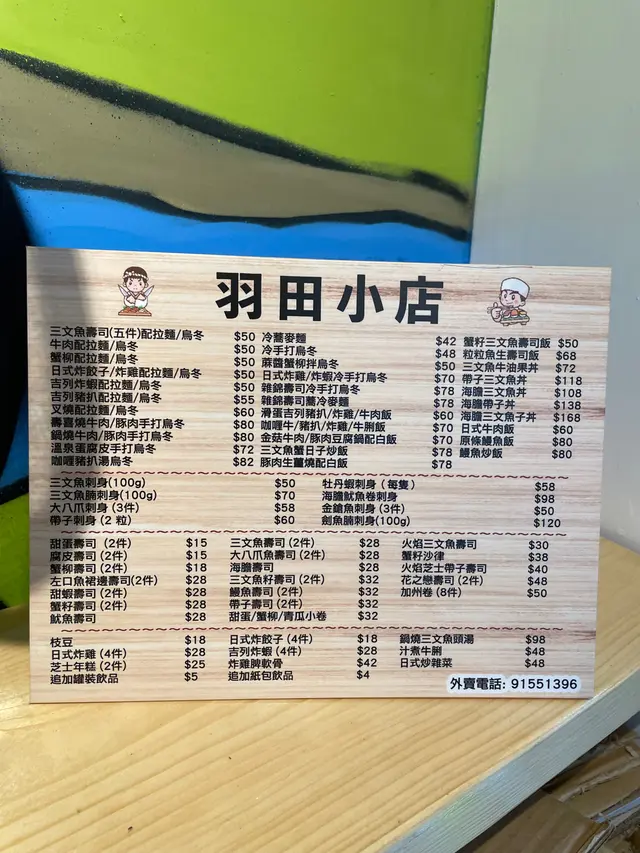 羽田小店
三文魚壽司(五件)配拉麵/烏冬 $50
牛肉配拉麵/烏冬 $50
蟹柳配拉麵/烏冬 $50
日式炸餃子/炸雞配拉麵/烏冬 $50
吉列炸蝦配拉麵/烏冬 $50
吉列豬扒配拉麵/烏冬 $55
叉燒配拉麵/烏冬 $60
壽喜燒牛肉/豚肉手打烏冬 $80
鍋燒牛肉/豚肉手打烏冬 $80
溫泉蛋腐皮手打烏冬 $72
咖喱豬扒湯烏冬 $82
冷蕎麥麵 $42
冷手打烏冬 $48
蔴醬蟹柳拌烏冬 $50
日式炸雞/炸蝦冷手打烏冬 $70
雜錦壽司冷手打烏冬 $78
雜錦壽司蕎冷麥麵 $78
滑蛋吉列豬扒/炸雞/牛肉飯 $60
咖喱牛/豬扒/炸雞/牛脷飯 $70
金菇牛肉/豚肉豆腐鍋配白飯 $70
三文魚蟹日子炒飯 $78
豚肉生薑燒配白飯 $78
蟹籽三文魚壽司飯 $50
粒粒魚生壽司飯 $68
三文魚牛油果丼 $72
帶子三文魚丼 $118
海膽三文魚丼 $108
海膽帶子丼 $138
海膽三文魚子丼 $168
日式牛肉飯 $60
原條鰻魚飯 $80
鰻魚炒飯 $80
三文魚刺身(100g) $50
三文魚腩刺身(100g) $70
大八爪刺身 (3件) $58
帶子刺身 (2 粒) $60
牡丹蝦刺身 (每隻) $58
海膽魷魚卷刺身 $98
金鎗魚刺身 (3件) $50
劍魚腩刺身(100g) $120
甜蛋壽司 (2件) $15
腐皮壽司 (2件) $15
蟹柳壽司 (2件) $18
左口魚裙邊壽司(2件) $28
甜蝦壽司 (2件) $28
蟹籽壽司 (2件) $28
魷魚壽司 $28
三文魚壽司 (2件) $28
大八爪魚壽司 (2件) $28
海膽壽司 $28
三文魚籽壽司 (2件) $32
鰻魚壽司 (2件) $32
帶子壽司 (2件) $32
甜蛋/蟹柳/青瓜小卷 $32
火焰三文魚壽司 $30
蟹籽沙律 $38
火焰芝士帶子壽司 $40
花之戀壽司 (2件) $48
加州卷 (8件) $50
枝豆 $18
日式炸雞 (4件) $28
芝士年糕 (2件) $25
追加罐裝飲品 $5
日式炸餃子 (4件) $18
吉列炸蝦 (4件) $28
炸雞脾軟骨 $42
追加紙包飲品 $4
鍋燒三文魚頭湯 $98
汁煮牛脷 $48
日式炒雜菜 $48
外賣電話: 91551396